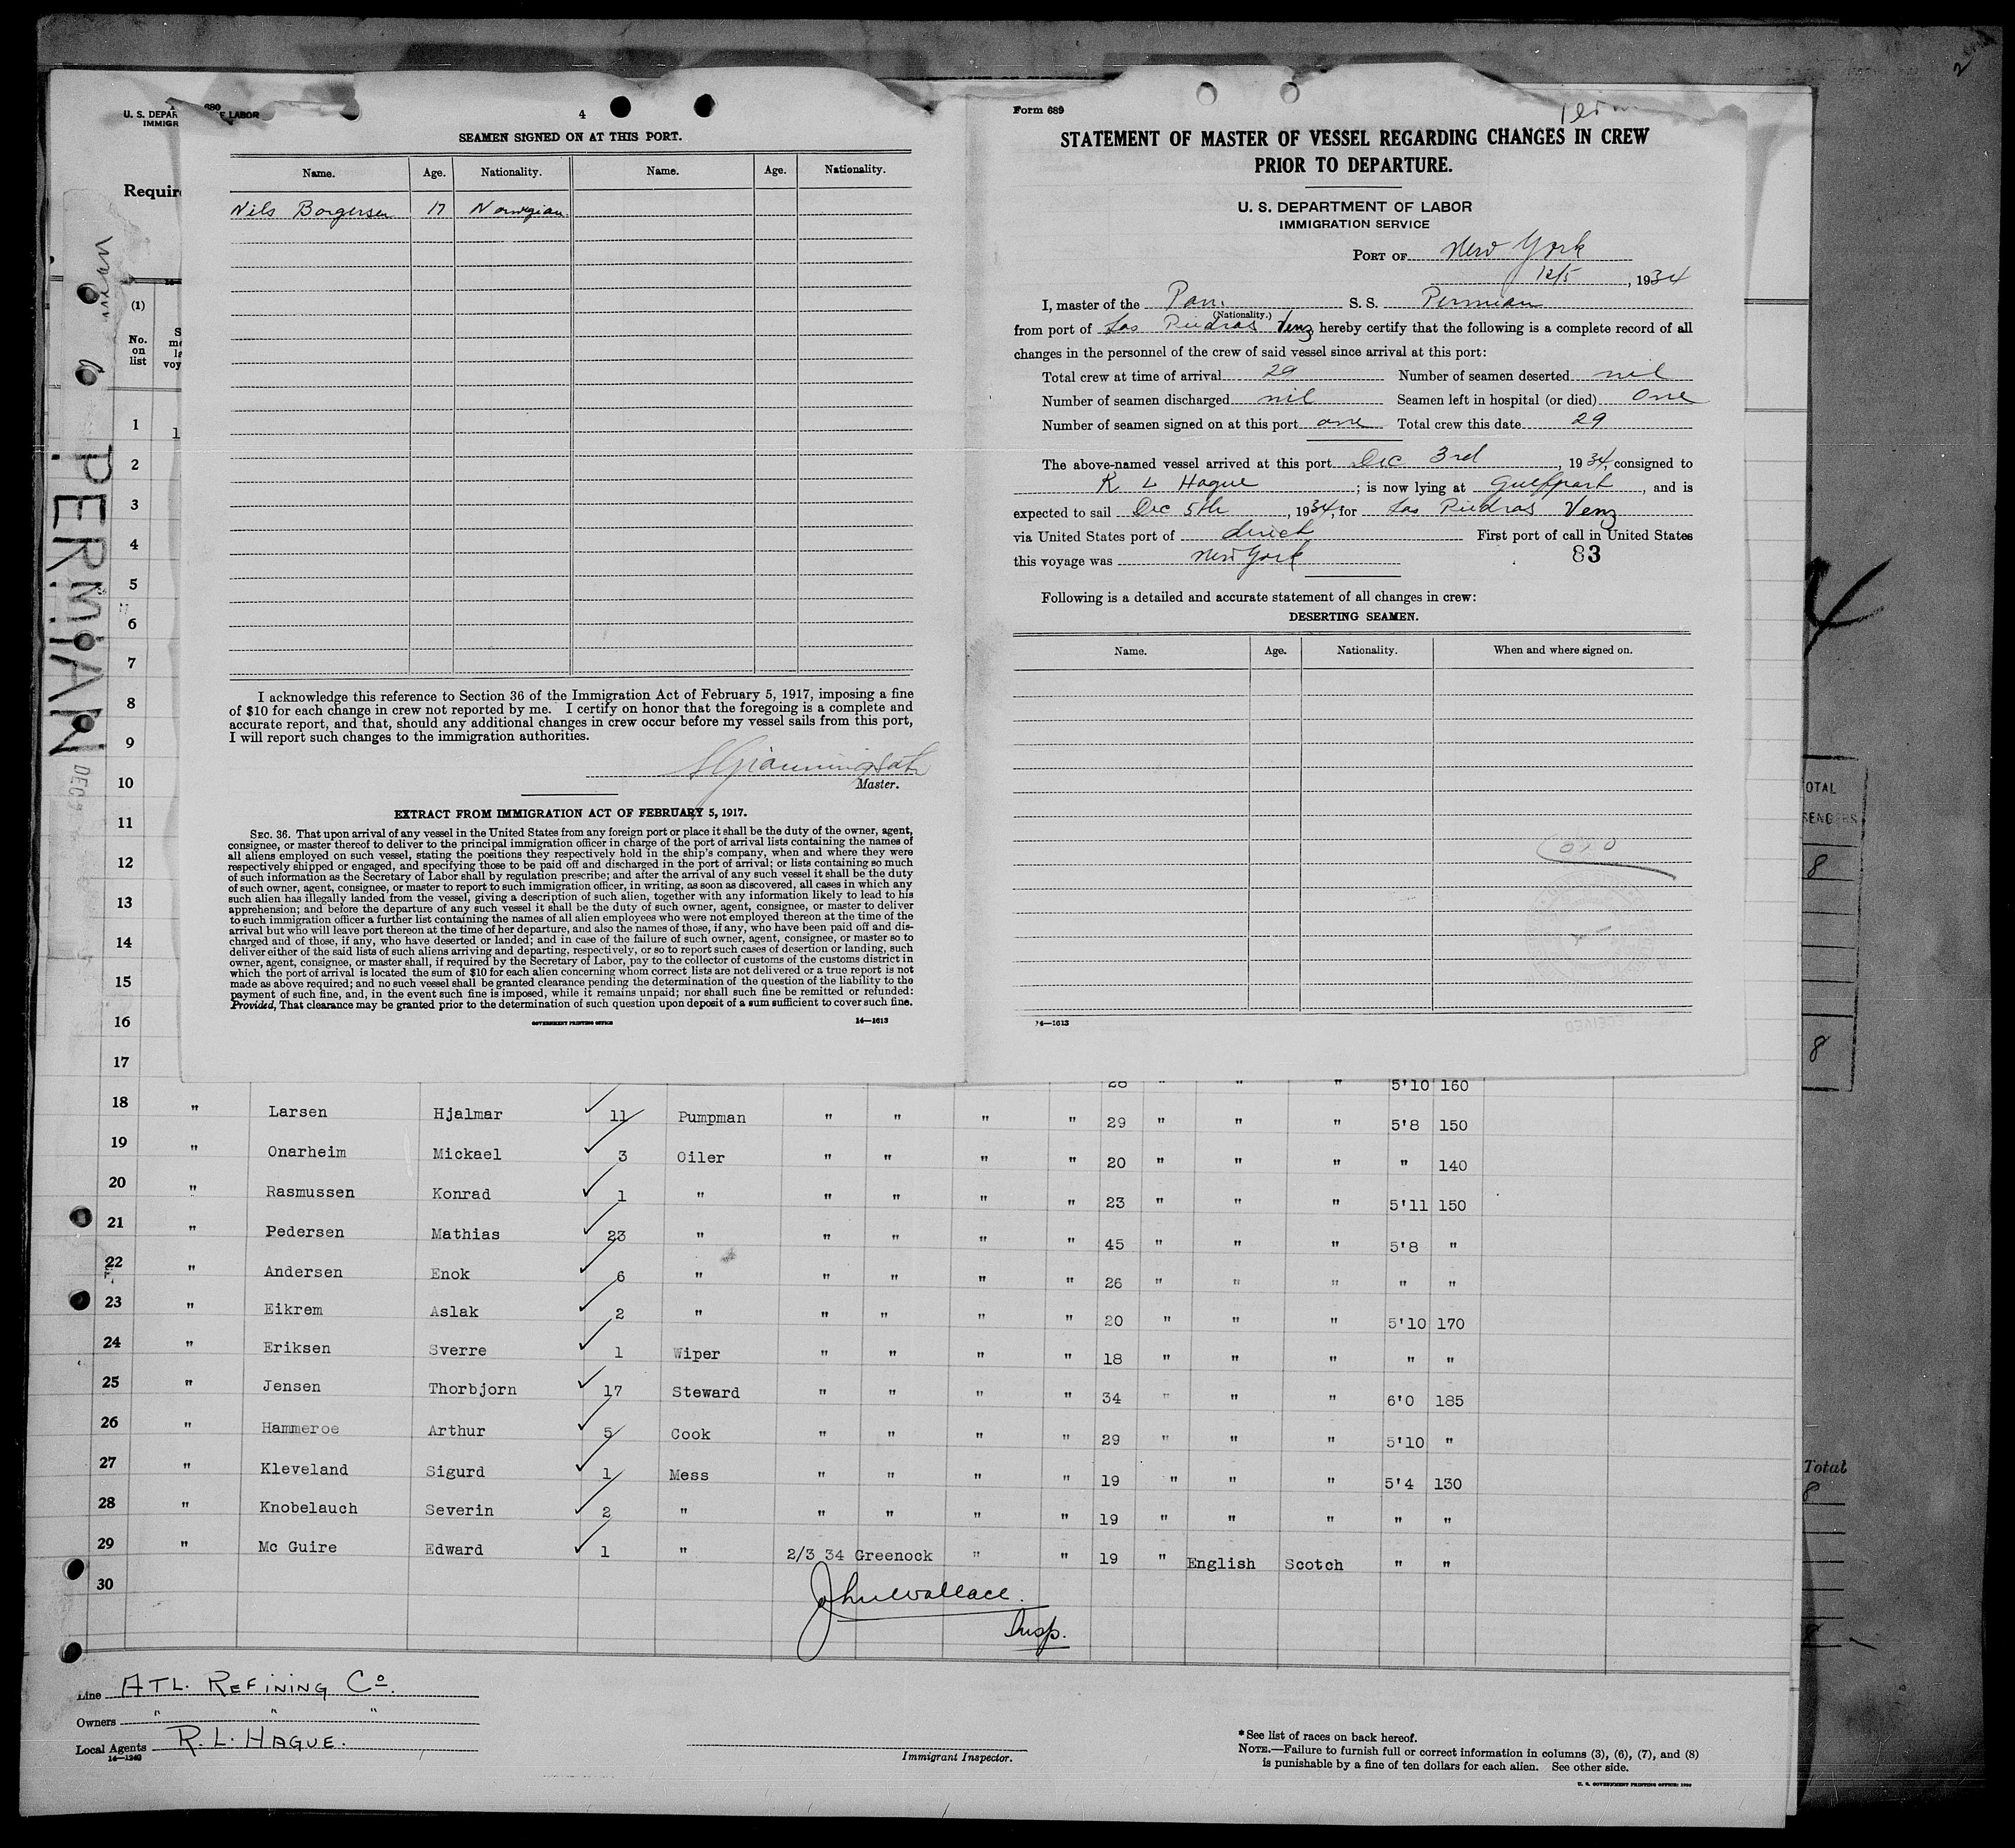 4
SEAMEN SIGNED ON AT THIS PORT.
Name. Age. Nationality. Name. Age. Nationality.
Nils Borgersen 17 Norwegian
I acknowledge this reference to Section 36 of the Immigration Act of February 5, 1917, imposing a fine
of $10 for each change in crew not reported by me. I certify on honor that the foregoing is a complete and
accurate report, and that, should any additional changes in crew occur before my vessel sails from this port,
I will report such changes to the immigration authorities.
Master.
EXTRACT FROM IMMIGRATION ACT OF FEBRUARY 5, 1917.
SEC. 36. That upon arrival of any vessel in the United States from any foreign port or place it shall be the duty of the owner, agent,
consignee, or master thereof to deliver to the principal immigration officer in charge of the port of arrival lists containing the names of
all aliens employed on such vessel, stating the positions they respectively hold in the ship's company, when and where they were
respectively shipped or engaged, and specifying those to be paid off and discharged in the port of arrival; or lists containing so much
of such information as the Secretary of Labor shall by regulation prescribe; and after the arrival of any such vessel it shall be the duty
of such owner, agent, consignee, or master to report to such immigration officer, in writing, as soon as discovered, all cases in which any
such alien has illegally landed from the vessel, giving a description of such alien, together with any information likely to lead to his
apprehension; and before the departure of any such vessel it shall be the duty of such owner, agent, consignee, or master to deliver
to such immigration officer a further list containing the names of all alien employees who were not employed thereon at the time of the
arrival but who will leave port thereon at the time of her departure, and also the names of those, if any, who have been paid off and dis-
charged and of those, if any, who have deserted or landed; and in case of the failure of such owner, agent, consignee, or master so to
deliver either of the said lists of such aliens arriving and departing, respectively, or so to report such cases of desertion or landing, such
owner, agent, consignee, or master shall, if required by the Secretary of Labor, pay to the collector of customs of the customs district in
which the port of arrival is located the sum of $10 for each alien concerning whom correct lists are not delivered or a true report is not
made as above required; and no such vessel shall be granted clearance pending the determination of the question of the liability to the
payment of such fine, and, in the event such fine is imposed, while it remains unpaid; nor shall such fine be remitted or refunded:
Provided, That clearance may be granted prior to the determination of such question upon deposit of a sum sufficient to cover such fine.
GOVERNMENT PRINTING OFFICE 14—1613
Form 689
STATEMENT OF MASTER OF VESSEL REGARDING CHANGES IN CREW
PRIOR TO DEPARTURE.
U. S. DEPARTMENT OF LABOR
IMMIGRATION SERVICE
PORT OF New York
12/5, 1934
I, master of the Pan. S. S. Permian
(Nationality.)
from port of Las Piedras Venz hereby certify that the following is a complete record of all
changes in the personnel of the crew of said vessel since arrival at this port:
Total crew at time of arrival 29 Number of seamen deserted nil
Number of seamen discharged nil Seamen left in hospital (or died) One
Number of seamen signed on at this port one Total crew this date 29
The above-named vessel arrived at this port Dec 3rd, 1934, consigned to
R L Hague; is now lying at Gulfport, and is
expected to sail Dec 5th, 1934, for Las Piedras Venz
via United States port of direct First port of call in United States
this voyage was New York 83
Following is a detailed and accurate statement of all changes in crew:
DESERTING SEAMEN.
Name. Age. Nationality. When and where signed on.
14—1613
U. S. DEPAR F LABOR
IMMIGR
Requir
(1)
No. on list
PERMIAN
DEC
1
2
3
4
5
6
7
8
9
10
11
12
13
14
15
16
17 5'10 160
18 " Larsen Hjalmar 11 Pumpman " " " " 29 " " " 5'8 150
19 " Onarheim Mickael 3 Oiler " " " " 20 " " " " 140
20 " Rasmussen Konrad 1 " " " " " 23 " " " 5'11 150
21 " Pedersen Mathias 23 " " " " " 45 " " " 5'8 "
22 " Andersen Enok 6 " " " " " 26 " " " " "
23 " Eikrem Aslak 2 " " " " " 20 " " " 5'10 170
24 " Eriksen Sverre 1 Wiper " " " " 18 " " " " "
25 " Jensen Thorbjorn 17 Steward " " " " 34 " " " 6'0 185
26 " Hammeroe Arthur 5 Cook " " " " 29 " " " 5'10 "
27 " Kleveland Sigurd 1 Mess " " " " 19 " " " 5'4 130
28 " Knobelauch Severin 2 " " " " " 19 " " " " "
29 " Mc Guire Edward 1 " 2/3 34 Greenock " " 19 " English Scotch " "
30
John Wallace.
Insp.
Line ATL. REFINING Co.
Owners " " "
Local Agents R. L. HAGUE.
14—1240
Immigrant Inspector.
* See list of races on back hereof.
NOTE.—Failure to furnish full or correct information in columns (3), (6), (7), and (8)
is punishable by a fine of ten dollars for each alien. See other side.
U. S. GOVERNMENT PRINTING OFFICE
OTAL
SENGERS
8
8
Total
8